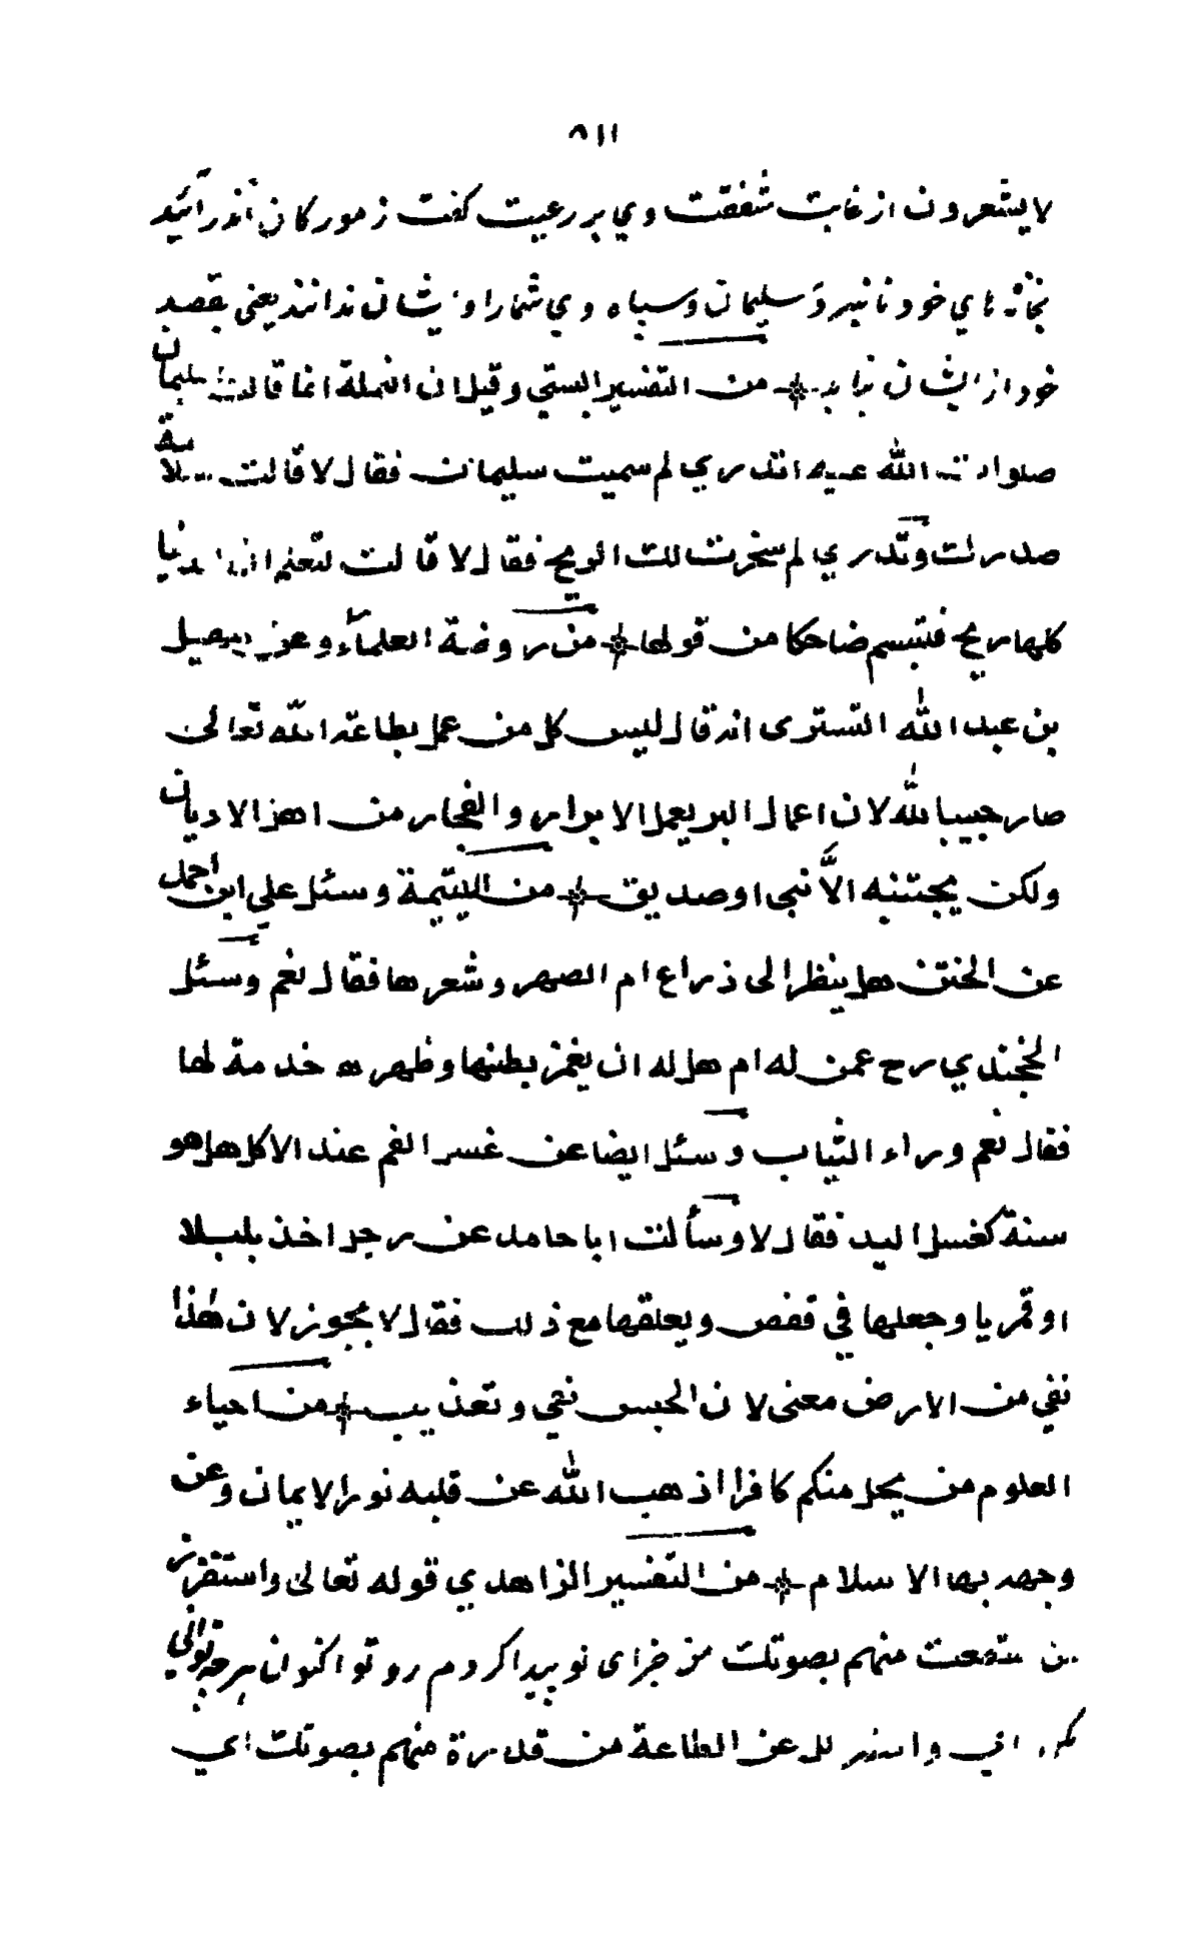 ٨١١
لا يشعرون از غايت شفقت وي بر رعيت كفت زموركان اندرآئيد
بخانه هاي خود تا نسپرد سليمان وسپاه وي شمارا وايشان ندانند يعنى بقصد
خود از ايشان نيايد من التفسير البستي وقيل ان النملة انما قالت لسليمان
صلوات الله عليه اتدري لم سميت سليمان فقال لا قالت سلامة
صدرك وتدري لم سخرت لك الريح فقال لا قالت لتعلم ان الدنيا
كلها ريح فتبسم ضاحكا من قولها من روضة العلماء وعن سهيل
بن عبد الله التسترى انه قال ليس كل من عمل بطاعة الله تعالى
صار حبيبا لله لان اعمال البر يعمل الابرار والفجار من اهل الاديان
ولكن يجتنبه الا نبي او صديق من اليتيمة وسئل علي ابن احمد
عن الختن هل ينظر الى ذراع ام الصهر وشعرها فقال نعم وسئل
الخجندي رح عمن له ام هل له ان يغمز بطنها وظهره خدمة لها
فقال نعم وراء الثياب وسئل ايضا عن غسل الفم عند الاكل هل هو
سنة كغسل اليد فقال لا وسألت ابا حامد عن رجل اخذ بلبلا
او قمريا وجعلها في قفص ويعلقها مع ذلك فقال لا يجوز لان هذا
نفي من الارض معنى لان الحبس نفي وتعذيب من احياء
العلوم من يحل منكم كافرا اذهب الله عن قلبه نور الايمان وعن
وجهه بهاء الاسلام من التفسير الزاهدي قوله تعالى واستفزز
من ستطعت منهم بصوتك من جزاى تو پيدا كردم رو تو اكنون هرچه تواني
بكن اي واستزلل عن الطاعة من قدرة منهم بصوتك اي